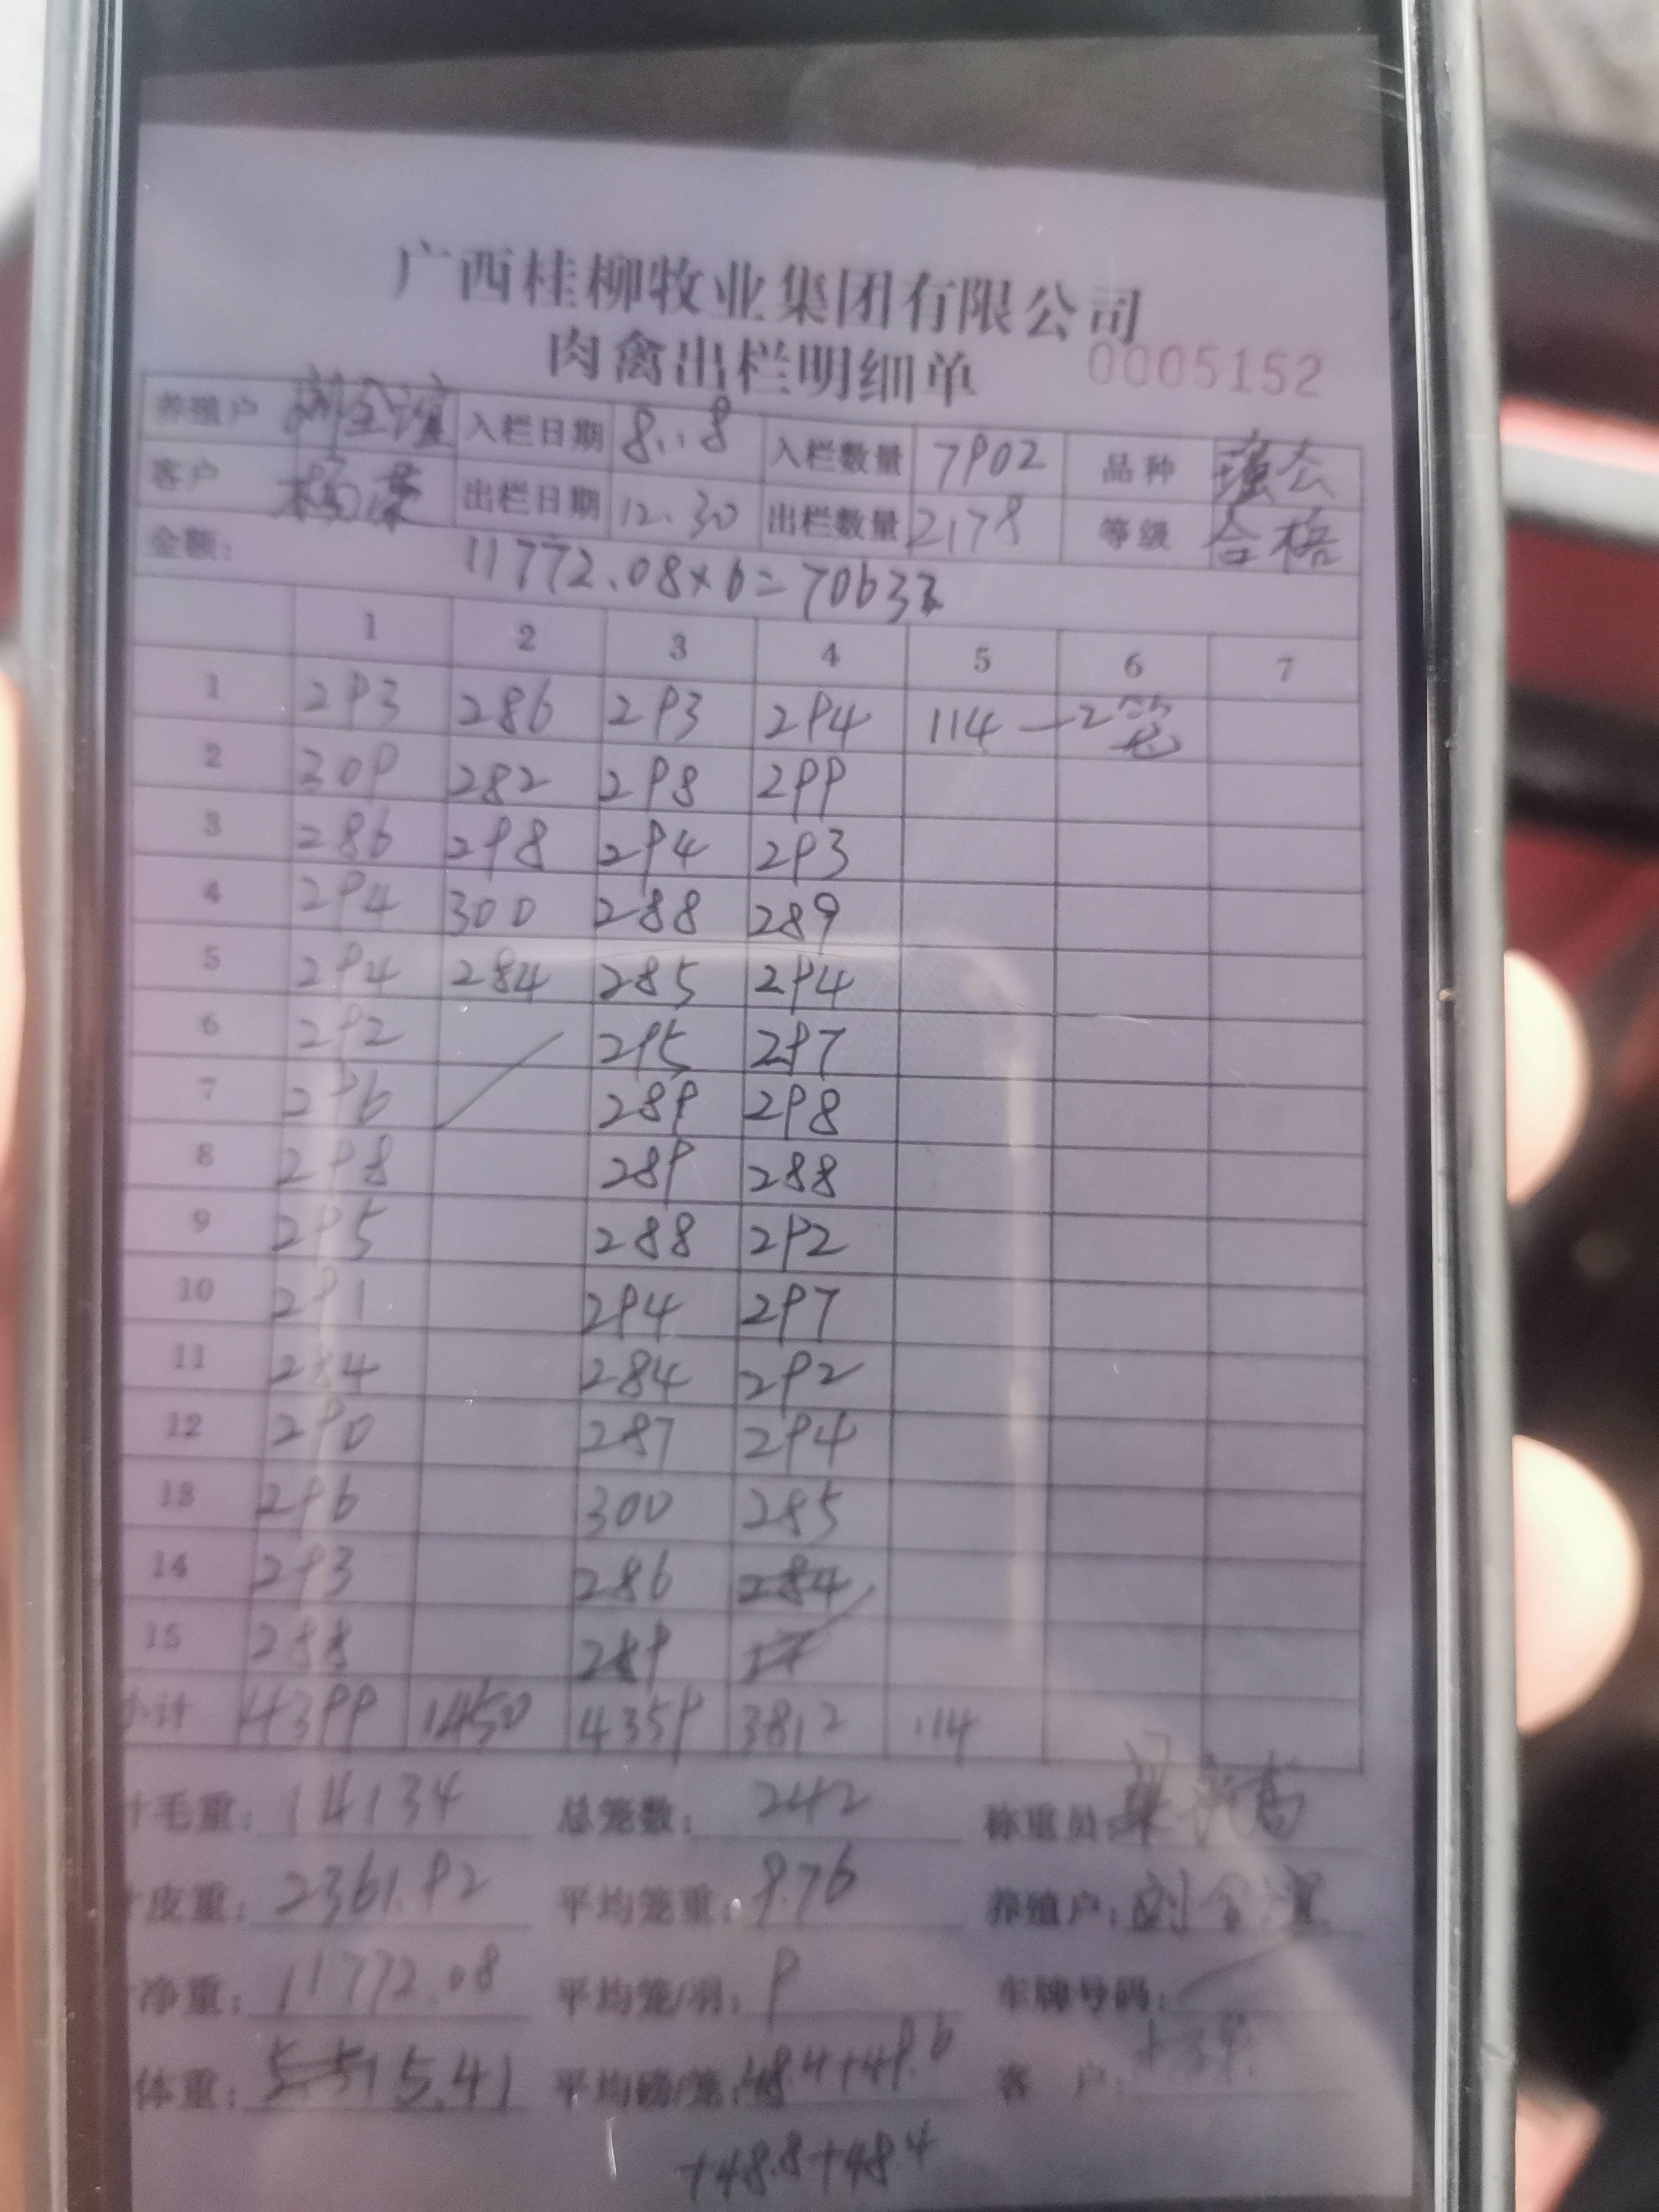 广西桂柳牧业集团有限公司
肉禽出栏明细单 0005152
养殖户 刘全谊 入栏日期 8.18 入栏数量 7902 品种 瑶公
客户 杨荣 出栏日期 12.30 出栏数量 2178 等级 合格
金额: 11772.08×6=70632
1 2 3 4 5 6 7
1 293 286 293 294 114 —2笼
2 309 282 298 299
3 286 298 294 293
4 294 300 288 289
5 294 284 285 294
6 292 295 297
7 296 289 298
8 298 289 288
9 295 288 292
10 291 294 297
11 284 284 292
12 290 287 294
13 296 300 285
14 293 286 284
15 288 289
小计 4399 1450 4359 3812 114
计毛重: 14134 总笼数: 242 称重员:
皮重: 2361.92 平均笼重: 9.76 养殖户: 刘全谊
净重: 11772.08 平均笼/羽: 9 车牌号码:
体重: 5.41 平均磅/笼: 48.4+49.6 客户:
+48.8+48.4